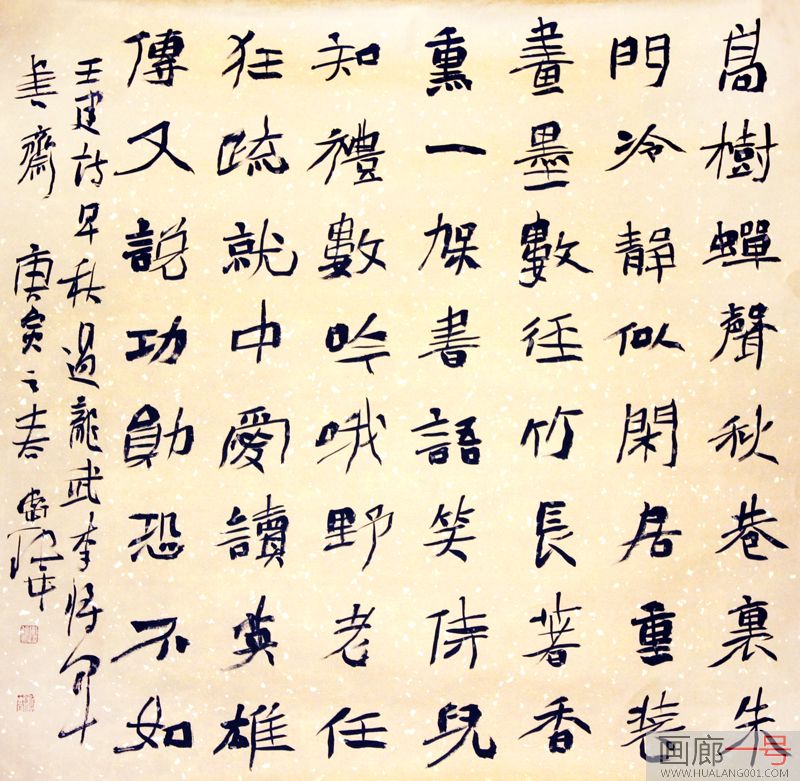 高樹蟬聲秋巷裏朱
門冷靜似閑居重装
畫墨數徑竹長著香
熏一架書語笑侍兒
知禮數吟哦野老任
狂疏就中愛讀英雄
傳又説功勛恐不如
王建詩早秋過龍武李將軍
書齋 庚寅之春
画廊一号
WWW.HUALANG001.COM